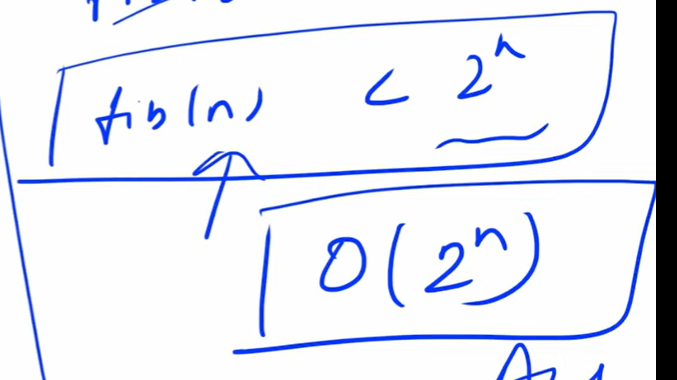 fib(n) < 2^n
O(2^n)